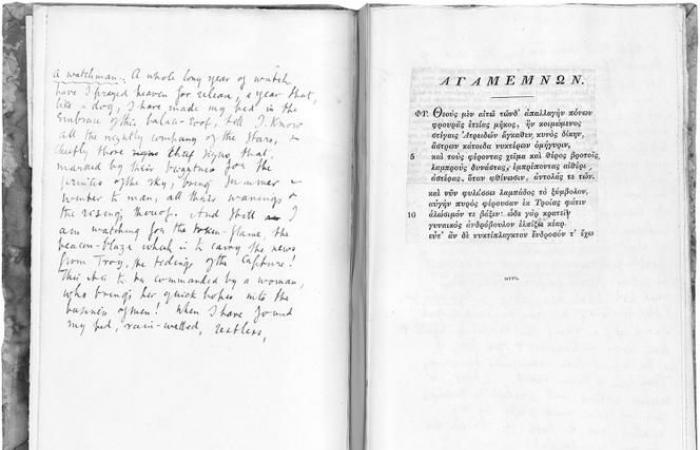 A watchman. A whole long year of watch
have I prayed heaven for release, a year that,
like a dog, I have made my bed in the
embrace of this palace-roof, till I know
all the nightly company of the stars, &
chiefly those signs chief signs that
marked by their brightness for the
princes of the sky, bring summer &
winter to man, all their wanings &
the risings thereof. And still I
am watching for the token-flame, the
beacon-blaze which is to carry the news
from Troy, the tidings of the capture!
This it is to be commanded by a woman,
who brings her quick hopes into the
business of men! When I have found
my bed, rain-wetted, restless,
ΑΓΑΜΕΜΝΩΝ.
ΦΥ. Θεοὺς μὲν αἰτῶ τῶνδ' ἀπαλλαγὴν πόνων
φρουρᾶς ἐτείας μῆκος, ἣν κοιμώμενος
στέγαις Ἀτρειδῶν ἄγκαθεν, κυνὸς δίκην,
ἄστρων κάτοιδα νυκτέρων ὁμήγυριν,
5 καὶ τοὺς φέροντας χεῖμα καὶ θέρος βροτοῖς,
λαμπροὺς δυνάστας, ἐμπρέποντας αἰθέρι,
ἀστέρας, ὅταν φθίνωσιν, ἀντολάς τε τῶν.
καὶ νῦν φυλάσσω λαμπάδος τὸ ξύμβολον,
αὐγὴν πυρὸς φέρουσαν ἐκ Τροίας φάτιν
10 ἁλώσιμόν τε βάξιν· ὧδε γὰρ κρατεῖν
γυναικὸς ἀνδρόβουλον ἐλπίζω κέαρ.
εὖτ' ἂν δὲ νυκτίπλαγκτον ἔνδροσόν τ' ἔχω